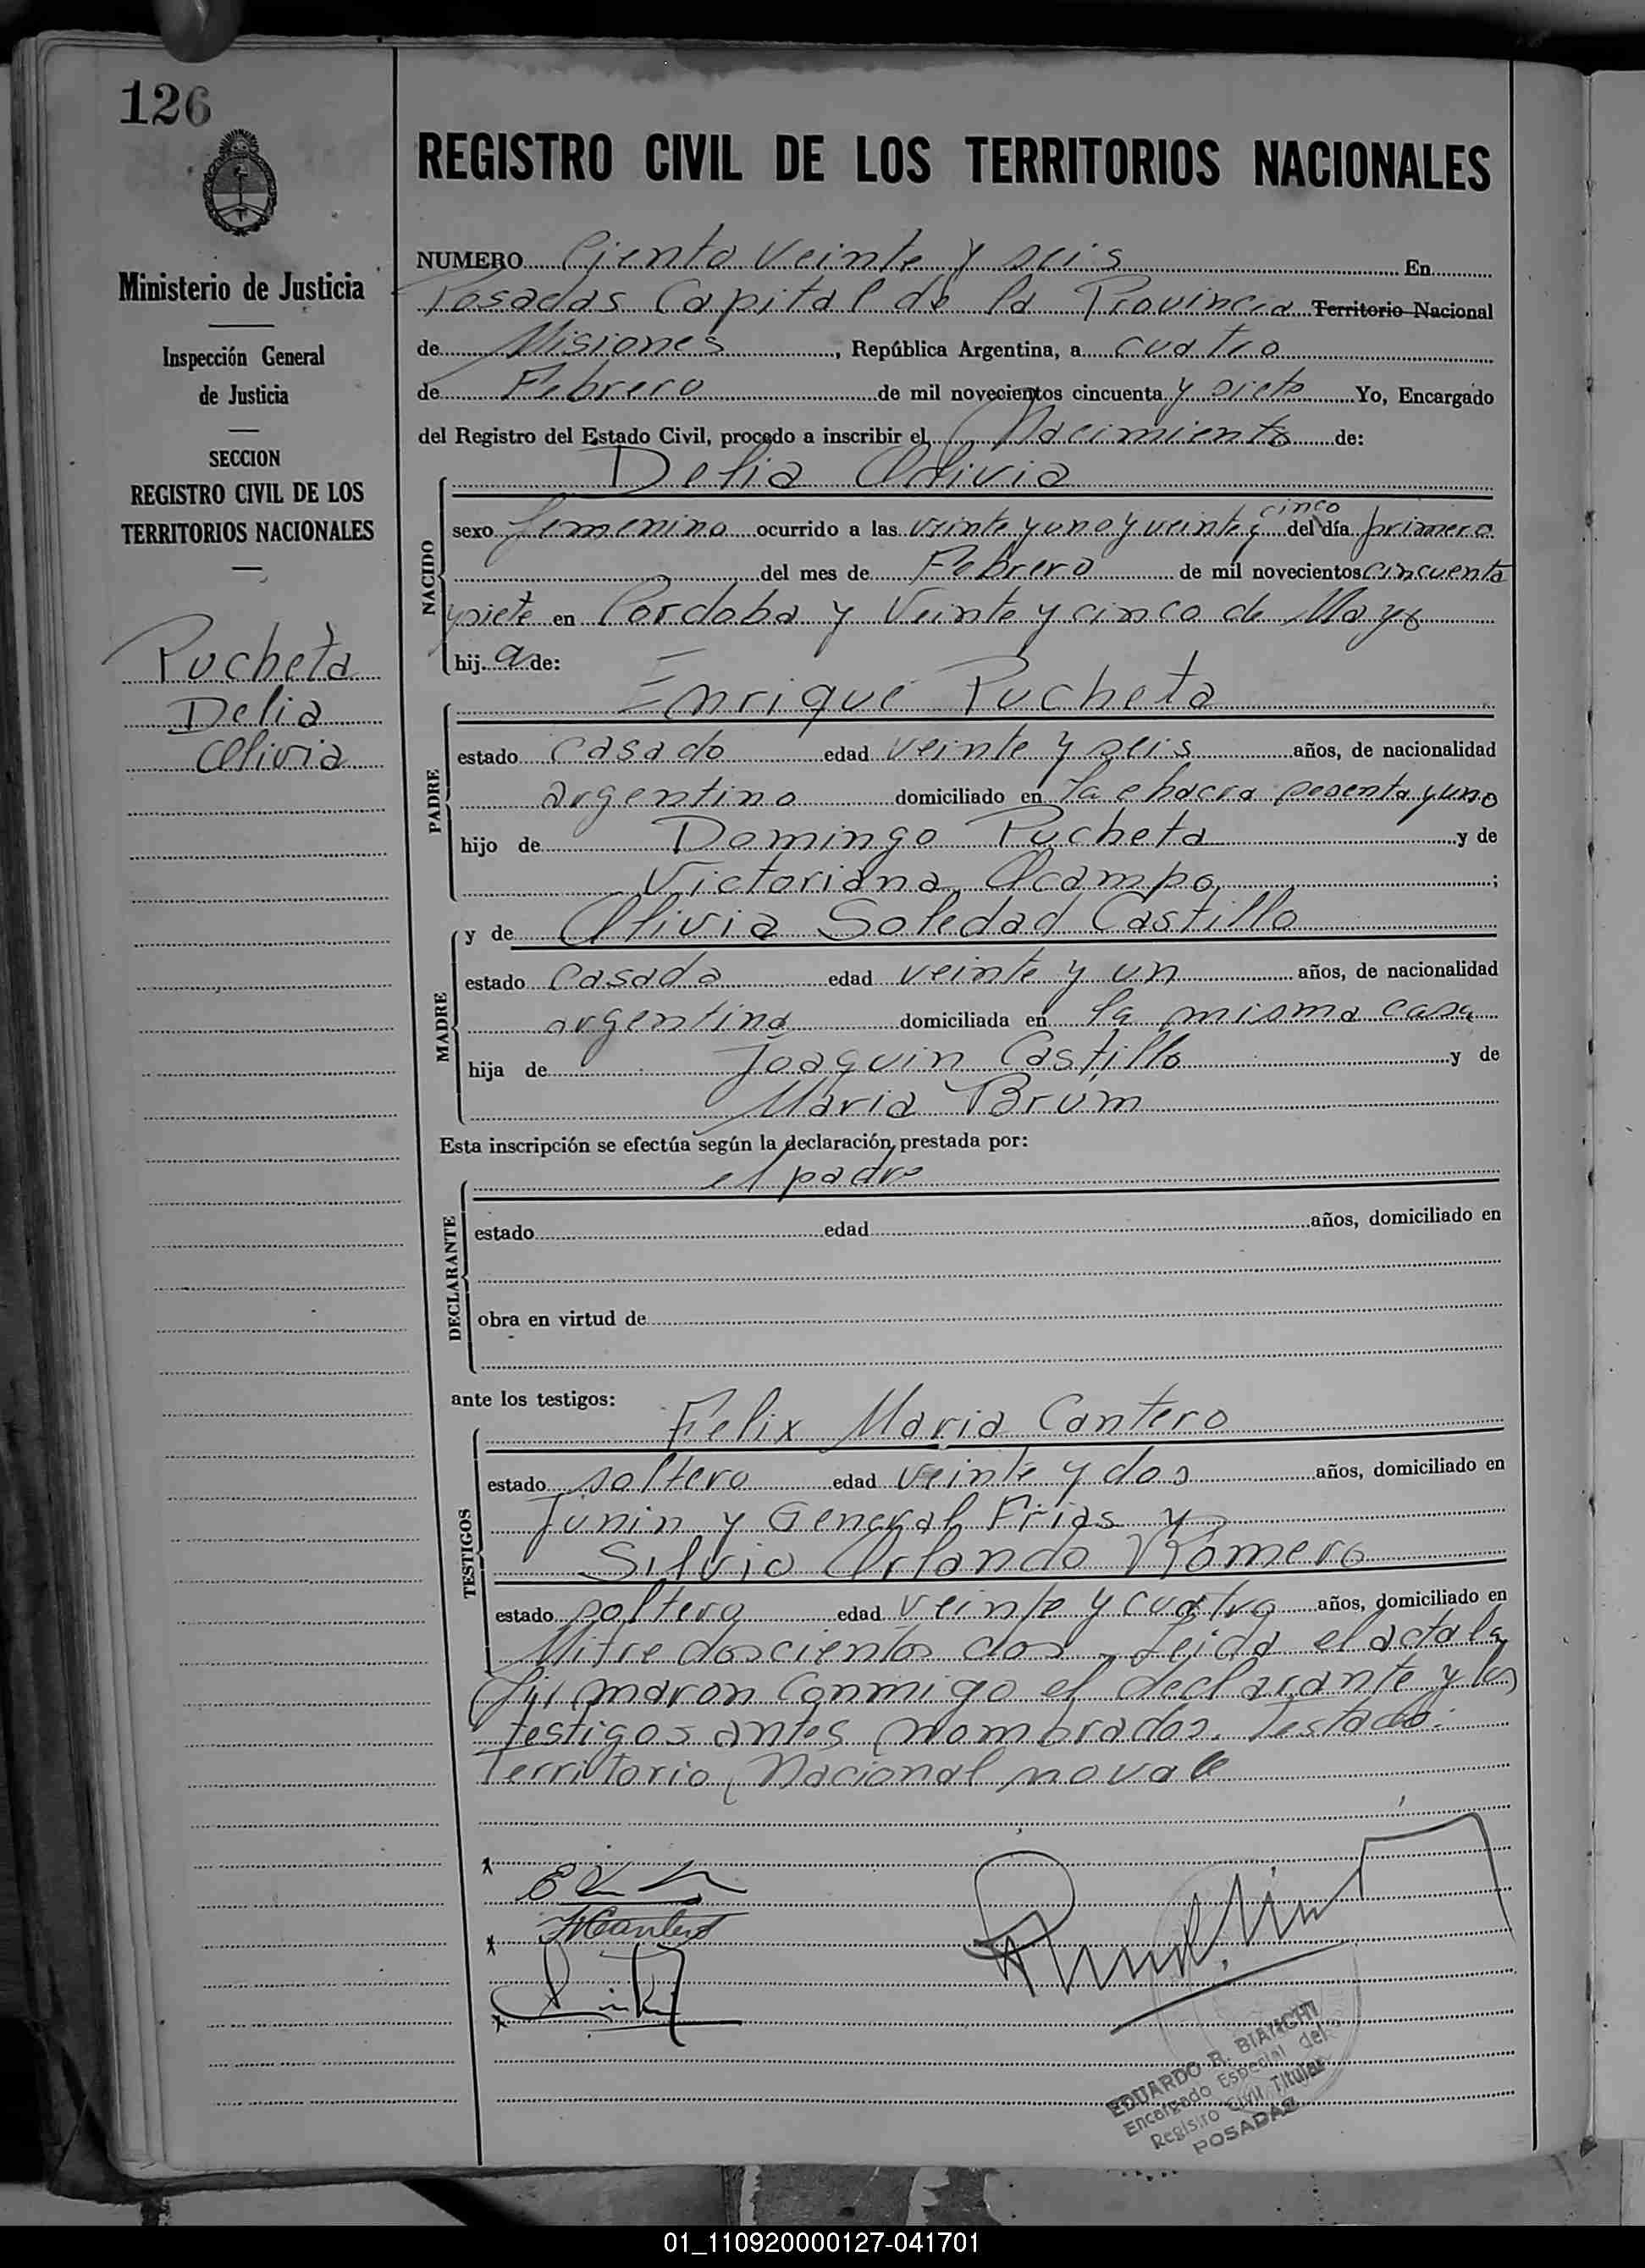 126
Ministerio de Justicia
Inspección General
de Justicia
SECCION
REGISTRO CIVIL DE LOS
TERRITORIOS NACIONALES
Pucheta
Delia
Olivia
REGISTRO CIVIL DE LOS TERRITORIOS NACIONALES
NUMERO Ciento veinte y seis En
Posadas Capital de la Provincia Territorio Nacional
de Misiones, República Argentina, a cuatro
de Febrero de mil novecientos cincuenta y siete Yo, Encargado
del Registro del Estado Civil, procedo a inscribir el Nacimiento de:
Delia Olivia
NACIDO
cinco
sexo femenino ocurrido a las veinte y uno y veinte y del día primero
del mes de Febrero de mil novecientos cincuenta
y siete en Cordoba y Veinte y cinco de Mayo
hij a de:
Enrique Pucheta
PADRE
estado casado edad veinte y seis años, de nacionalidad
argentino domiciliado en la chacra sesenta y uno
hijo de Domingo Pucheta y de
Victoriana Ocampo;
MADRE
y de Olivia Soledad Castillo
estado casada edad veinte y un años, de nacionalidad
argentina domiciliada en la misma casa
hija de Joaquin Castillo y de
Maria Brum
Esta inscripción se efectúa según la declaración prestada por:
el padre
DECLARANTE
estado edad años, domiciliado en
obra en virtud de
ante los testigos:
Felix Maria Cantero
TESTIGOS
estado soltero edad veinte y dos años, domiciliado en
Junin y General Frias y
Silvio Orlando Romero
estado soltero edad veinte y cuatro años, domiciliado en
Mitre doscientos dos. Leida el acta la
firmaron conmigo el declarante y los
testigos antes nombrados. Testado:
Territorio Nacional no vale
EDUARDO R. BIANCHI
Encargado Especial del
Registro Civil Titular
POSADAS
01_110920000127-041701